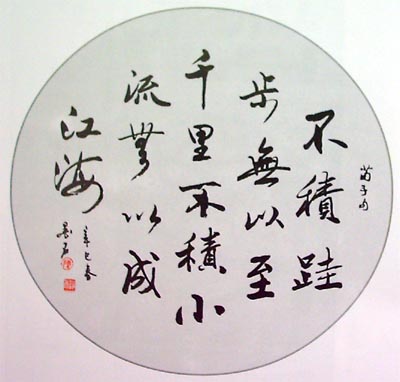 荀子句
不積跬
步無以至
千里不積小
流無以成
江海
辛巳春